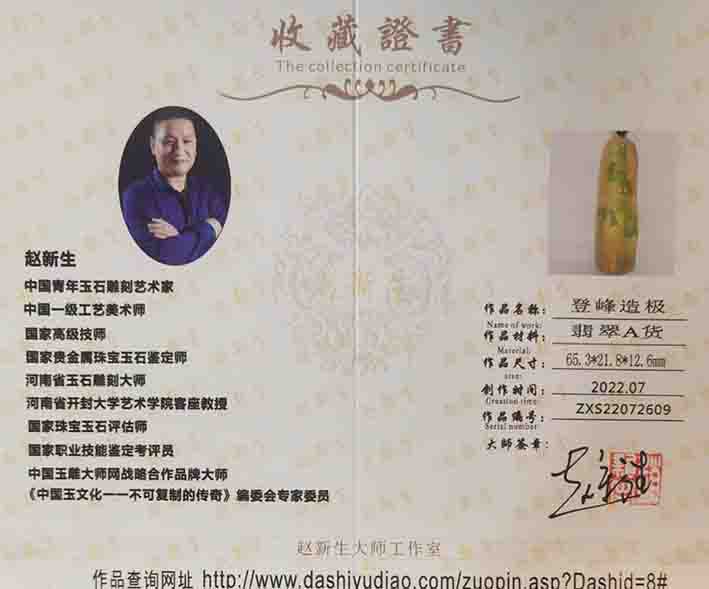 收藏證書
The collection certificate
赵新生
中国青年玉石雕刻艺术家
中国一级工艺美术师
国家高级技师
国家贵金属珠宝玉石鉴定师
河南省玉石雕刻大师
河南省开封大学艺术学院客座教授
国家珠宝玉石评估师
国家职业技能鉴定考评员
中国玉雕大师网战略合作品牌大师
《中国玉文化一一不可复制的传奇》编委会专家委员
作品名称： 登峰造极
Name of work:
作品材料： 翡翠A货
Material:
作品尺寸： 65.3*21.8*12.6mm
size:
创作时间： 2022.07
Creation time:
作品编号： ZXS22072609
Serial number:
大师签章：
赵新生
赵新生大师工作室
作品查询网址 http://www.dashiyudiao.com/zuopin.asp?Dashid=8#